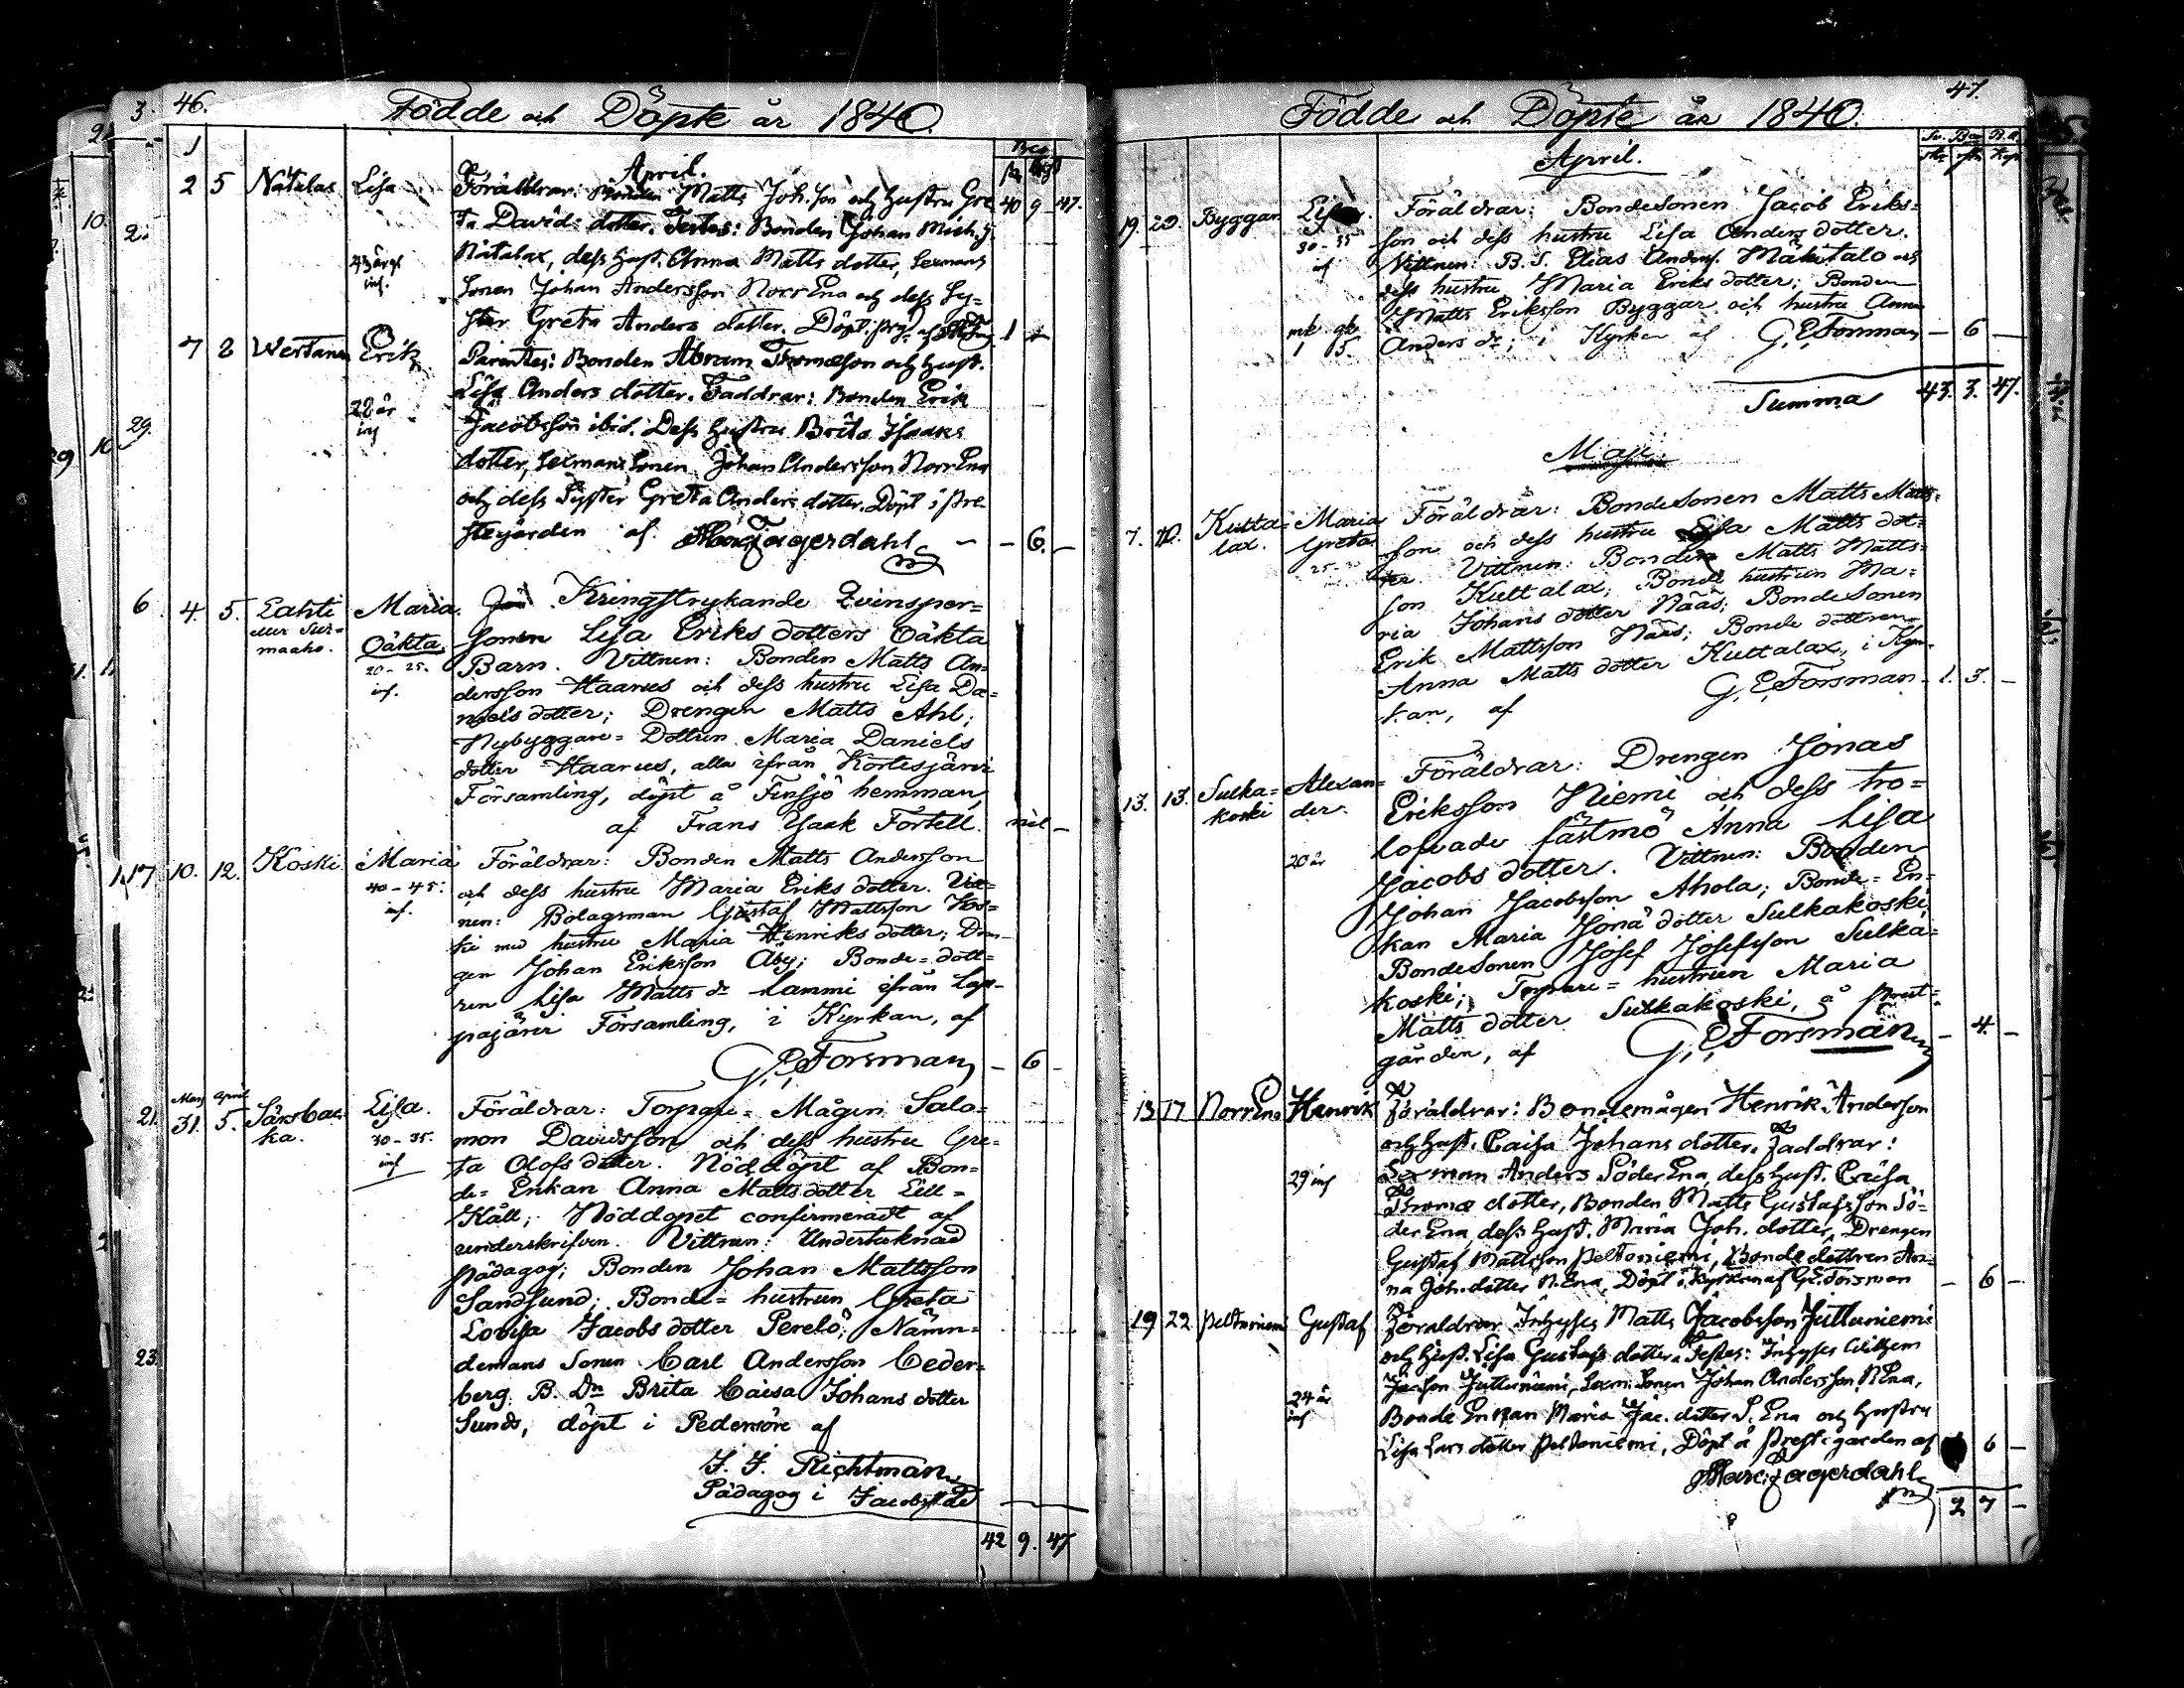 46.
Födde och Döpte år 1840.
April.
2 5 Nätalax Lisa Föräldrar: Bonden Matts Joh.son och Hustru Gre 40 9 47.
ta Davids dotter. Testes: Bonden Johan Mich.s.
43 år inf. Nätalax, dess Hust. Anna Matts dotter, Sexmans
Sonen Johan Andersson NorrEna och dess Sy=
ster Greta Anders dotter.
7 8 Wertanen Erik Parentes: Bonden Abram Thomæson och Hust.
Lisa Anders dotter. Faddrar: Bonden Erik
28 år inf Jacobsson ibid. Dess Hustru Brita Isaaks
dotter, Sexmans Sonen Johan Andersson NorrEna
och dess Syster Greta Anders dotter. Döpt i Pre-
stegården af. Fagerdahl — 6. —
4. 5. Lahti Maria. Kringstrykande Qvinsper=
eller Sur= maaho. Oäkta. sonen Lisa Eriks dotters Oäkta
20 - 25. inf. Barn. Vittnen: Bonden Matts An=
dersson Haarus och dess hustru Lisa Da=
niels dotter; Drengen Matts Ahl;
Nybyggare= Dottren Maria Daniels
dotter Haarus, alla ifrån Kortesjärvi
Församling, döpt å Finsjö hemman,
af Frans Isaak Fortell. nil —
10. 12. Koski. Maria Föräldrar: Bonden Matts Andersson
40 - 45. inf. och dess hustru Maria Eriks dotter. Vitt=
nen: Bolagsman Gustaf Mattsson Kos=
ki med hustru Maria Henriks dotter; Dren=
gen Johan Eriksson Åby; Bonde= dott=
ren Lisa Matts dr Lammi ifrån Lap=
pajärvi Församling, i Kyrkan, af
G. E. Forsman — 6 —
Mars April
31. 5. Särsbac= ka. Lisa. Föräldrar: Torpare= Mågen Salo=
30 - 35. inf mon Davidsson och dess hustru Gre=
ta Olofs dotter. Nöddöpt af Bon=
de= Enkan Anna Matts dotter Lill=
Kåll; Nöddopet confirmeradt af
underskrifven. Vittnen: Undertecknad
Pädagog; Bonden Johan Mattsson
Sandsund; Bonde= hustrun Greta
Lovisa Jacobs dotter Perelö; Nämn=
demans Sonen Carl Andersson Ceder=
berg. B. Dn Brita Caisa Johans dotter
Sunds, döpt i Pedersöre af
J. J. Richtman,
Pädagog i Jacobstad
42 9. 47
47.
Födde och Döpte år 1840.
April.
19. 20. Byggar Lisa Föräldrar: BondeSonen Jacob Eriks=
30 - 35 inf son och dess hustru Lisa Anders dotter.
Vittnen: B. S. Elias Anders. Mäkitalo och
dess hustru Maria Eriks dotter; Bonden
Matts Eriksson Byggar och hustru Anna
mk qk 1 5. Anders dr; i Kyrkan af G. E. Forsman — 6 —
Summa 43. 3. 47.
Maji
7. 10. Kutta= lax. Maria Greta Föräldrar: BondeSonen Matts Matts=
25 - 30 son och dess hustru Lisa Matts dot=
ter. Vittnen: Bonden Matts Matts=
son Kuttalax; Bonde hustrun Ma=
ria Johans dotter Nääs; BondeSonen
Erik Mattsson Nääs; Bonde dottren
Anna Matts dotter Kuttalax, i Kyr=
kan, af G. E. Forsman 1. 3. —
13. 13. Sulka= koski Alexan= der. Föräldrar: Drengen Jonas
Eriksson Niemi och dess tro=
20 år lofvade fästmö Anna Lisa
Jacobs dotter. Vittnen: Bonden
Johan Jacobsson Ahola; Bonde= En=
kan Maria Jonæ dotter Sulkakoski;
BondeSonen Josef Josefsson Sulka=
koski; Torpare= hustrun Maria
Matts dotter Sulkakoski, å Prest=
gården, af G. E. Forsman — 4. —
13 17 NorrEna Henrik Föräldrar: Bondemågen Henrik Anderson
och Hust. Caisa Johans dotter. Faddrar:
29 inf Sexman Anders SöderEna, dess Hust. Caisa
Thomæ dotter, Bonden Matts Gustafsson Sö=
derEna, dess Hust. Maria Joh. dotter, Drengen
Gustaf Mattsson Peltoniemi, Bonde dottren An=
na Joh. dotter N.Ena, Döpt i Kyrkan af G. E. Forsman — 6 —
19 22 Peltoniemi Gustaf Föräldrar Inhyses Matts Jacobsson Juttuniemi
och Hust. Lisa Gustafs dotter. Testes: Inhyses Wilhem
24 år inf Jac.son Juttuniemi, Sexm. Sonen Johan Andersson N.Ena,
Bonde Enkan Maria Jac. dotter S. Ena och hustru
Lisa Lars dotter Peltoniemi, Döpt å Prestegården af 6 —
Fagerdahl
2 7 —